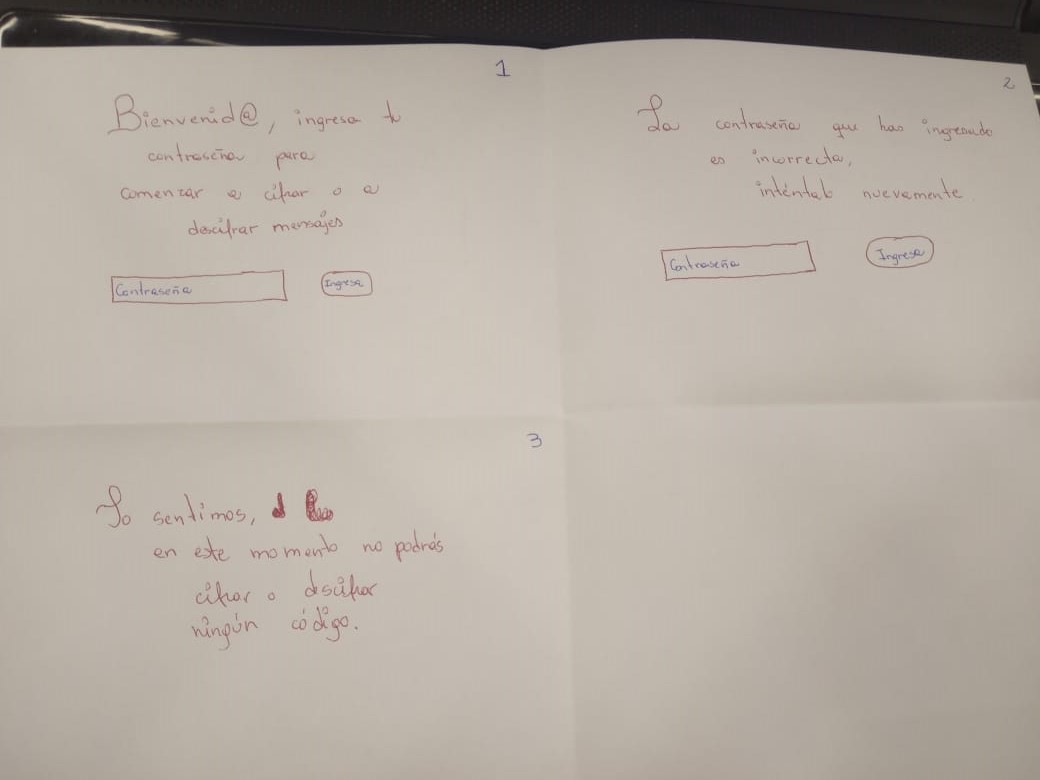 1
Bienvenid@, ingresa tu
contraseña para
comenzar a cifrar o a
descifrar mensajes
Contraseña
Ingresa
2
La contraseña que has ingresado
es incorrecta,
inténtalo nuevamente
Contraseña
Ingresa
3
Lo sentimos,
en este momento no podrás
cifrar o descifrar
ningún código.